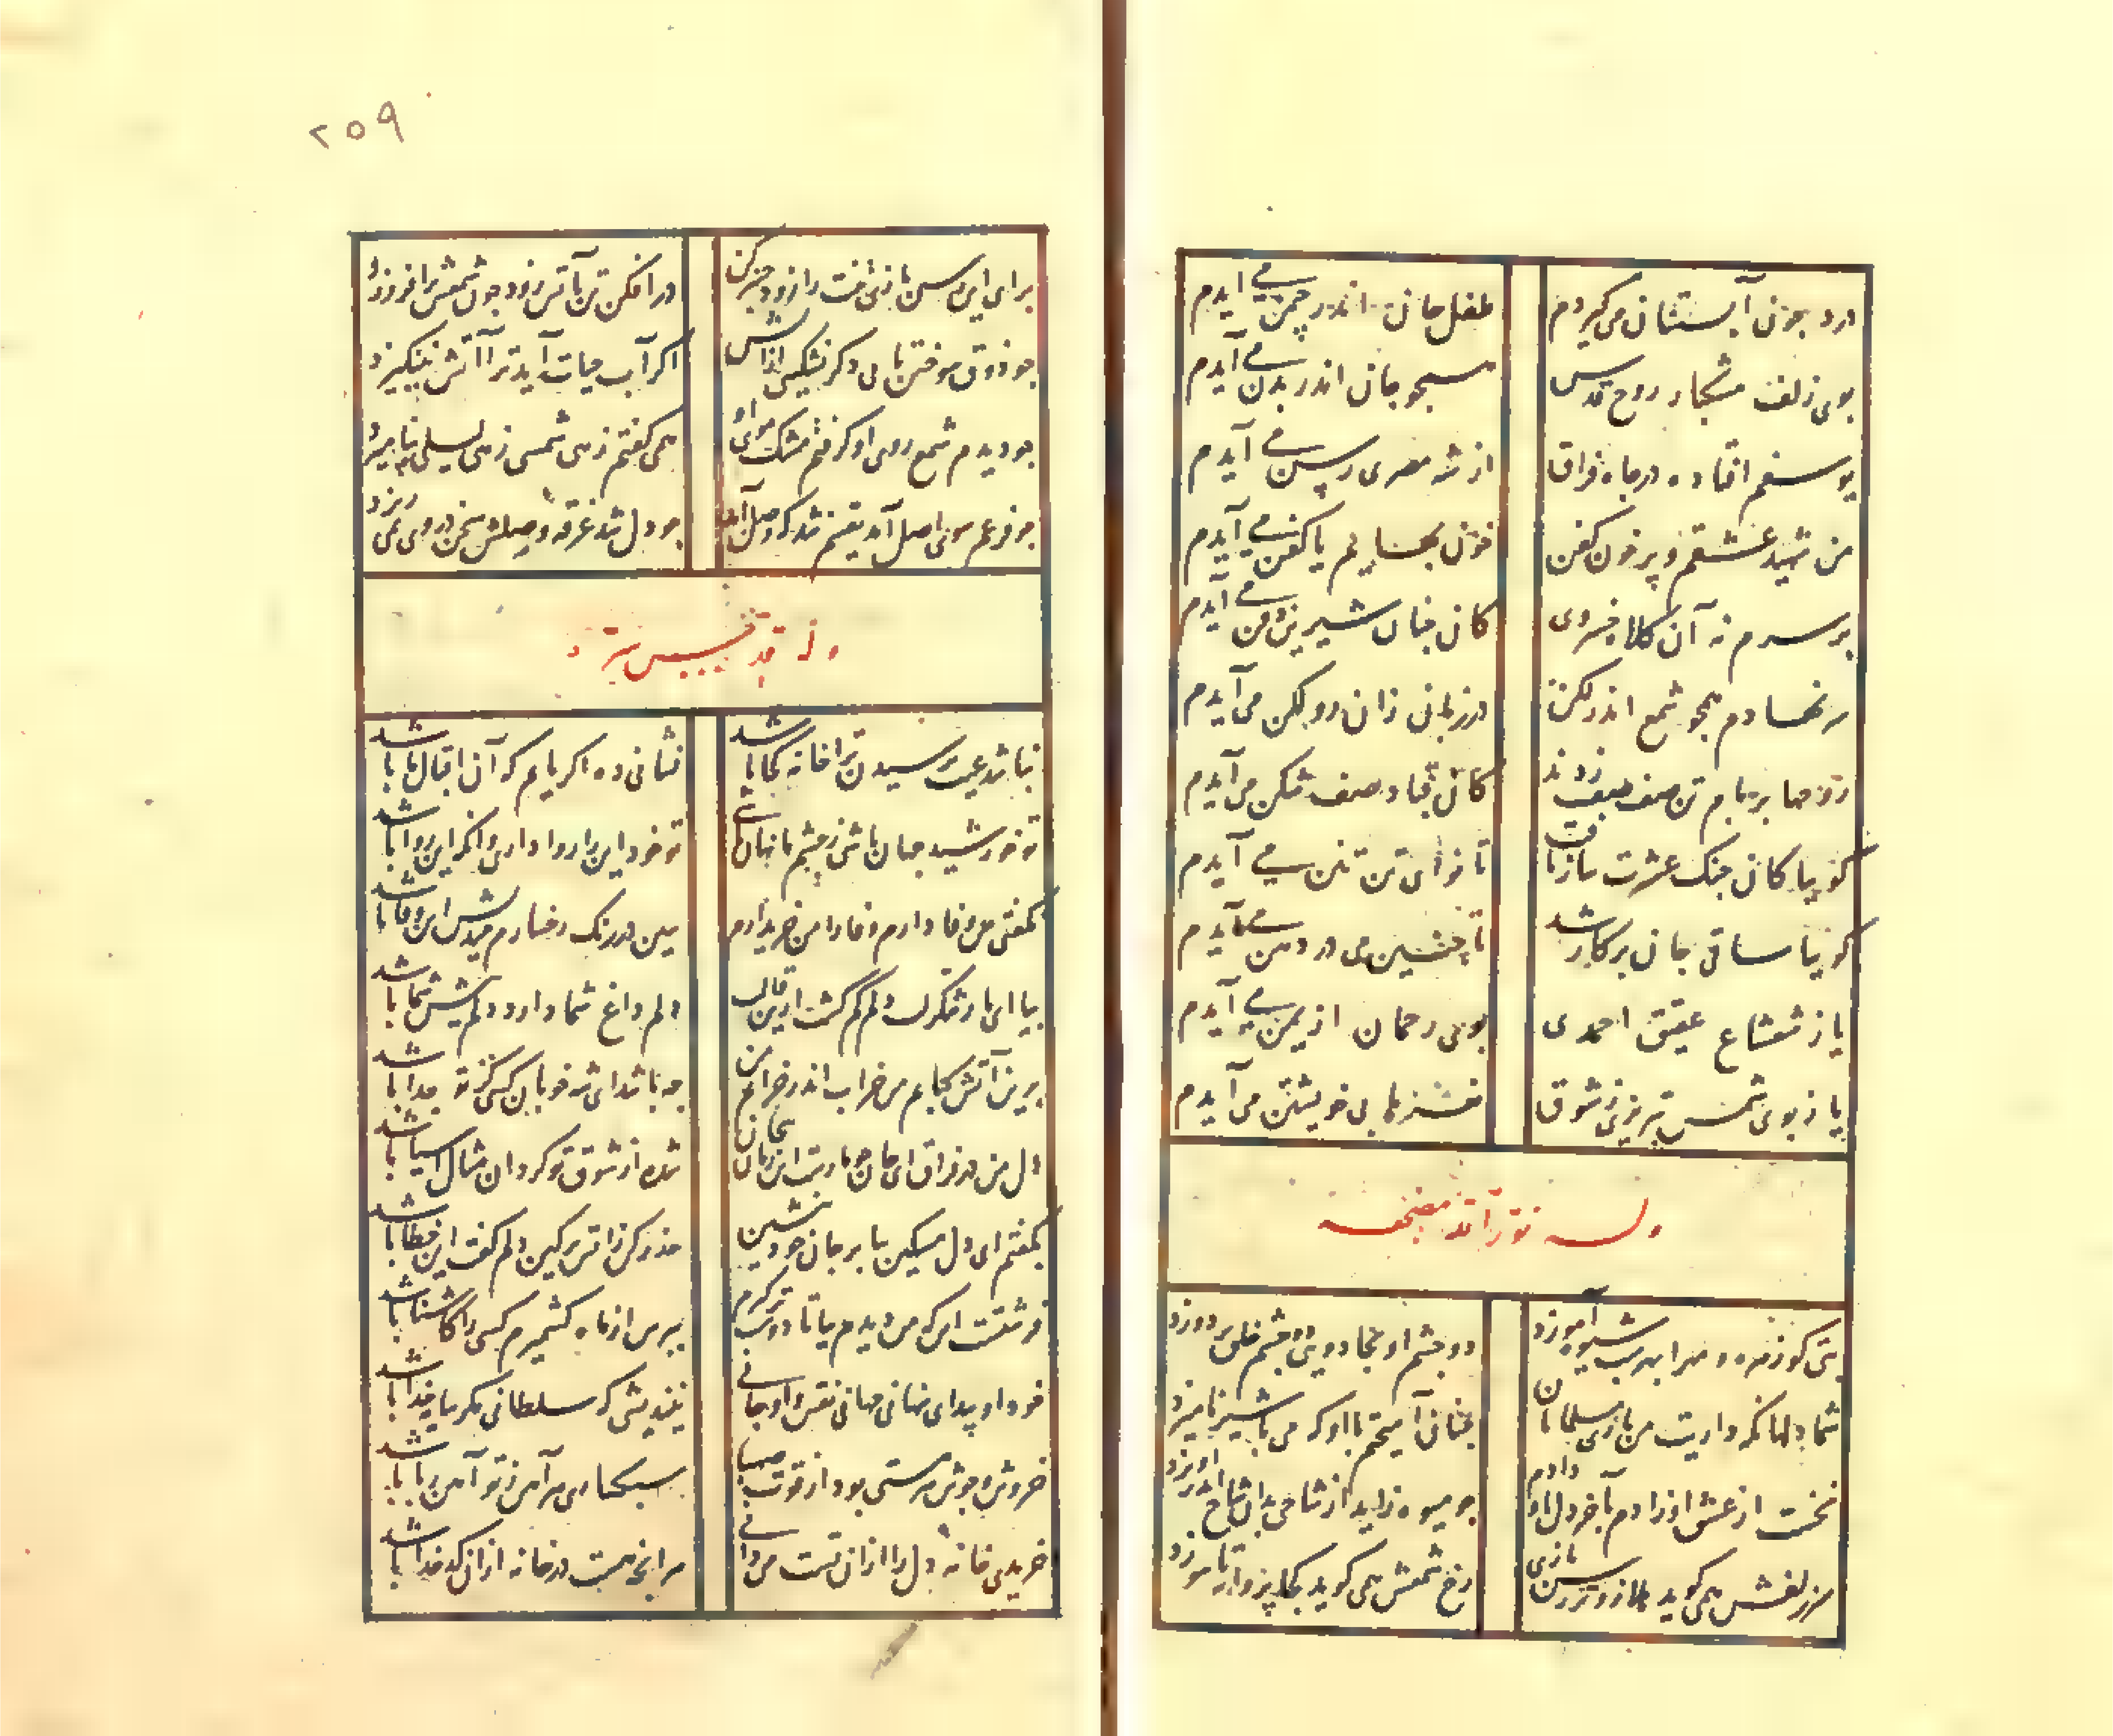 درد چون آبستنان می‌کیردم
طفل جان اندر چمن می آیدم
بوی زلف مشکبار روح قدس
همچو جان اندر بدن می آیدم
یوسفم افتاده در چاه فراق
از شه مصری رسن می آیدم
من شهید عشقم و پر خون کفن
خون بها یا کفن می آیدم
بر سرم نه آن کلاه خسروی
کان چنان شیرین ذقن می آیدم
سر نهادم همچو شمع اندر لکن
در زبانی زان رو لکن می آیدم
روحها بر بام تن صف صف زدند
کان قباد صف شکن می آیدم
کوییا کان چنک عشرت ساز یافت
تا نوای تن تنن می آیدم
کوییا ساقی جان بر کار شد
تا چنین می در دهن می آیدم
یا ز شعشاع عقیق احمدی
بوی رحمان از یمن می آیدم
یا ز بوی شمس تبریزی ز شوق
نغزها بی خویشتن می آیدم
وله نور الله مضجعه
بتی کو زهره و مه را همه شب شیوه آموزد
دو چشم او بجادویی دو چشم خلق بردوزد
شما دلها نکه داریت من باری مسلمانان
چنان آمیختم با او که می با شیر نامیزد
نخست از عشق او زادم بآخر دل باو دادم
چو میوه زاید از شاخی بدان شاخ اندر اویزد
سر زلفش همی کوید هلا زوتر رسن بازی
رخ شمعش همی کوید کجا پروانه تا سوزد
۲۵۹
برای این رسن بازی نخست را زود چنبر کن
در افکن تن بآتش زود چون شمعش برافروزد
چو ذوق سوختن یابی دکر نشکیبی از آتش
اکر آب حیات آید ترا از آتش نینکیزد
چو دیدم شمع روی او کرفتم مشک موی او
همی کفتم زهی شمسی زهی لیلی
چو فرعم سوی اصل آمد یقینم شد که وصل آمد
چو دل شد غرقه وصلش سخن در وی نمی ریزد
وله قدس سره
نباشد عیب پرسیدن ترا خانه کجا باشد
نشانی ده اکر یابم که آن اقبال ما باشد
تو خورشید جهان باشی ز چشم ما نهان باشی
تو خود این را روا داری وانکه این روا باشد
بکفتی من وفا دارم وفا را من خریدارم
ببین در رنک رخسارم بیندیش این وفا باشد
بیا ای یار شکر لب دلم کم کشت ازین قالب
دلم داغ شما دارد دلم پیش شما باشد
برین آتش کبابم من خراب اندر خرابم من
چه باشد ای شه خوبان کسی کز تو جدا باشد
دل من در فراق ای جان چو ماریست این زمان پیچان
شده از شوق تو کردان مثال آسیا باشد
بکفتم ای دل مسکین بیا بر جان خود بنشین
حذر کن ز آتش پرکین دلم کفت این خطا باشد
فرشتست آنکه من دیدم بیا تا دوست تر کردم
بپرس از ماه کشمیرم کسی را کاشنا باشد
خود او پیدای پنهانی جهانی نقش و او جانی
نیندیشی که سلطانی مکر سایه خدا باشد
خروش و جوش هر مستی بود از قوت صهبا
سبکساری هر آهن ز تو آهن ربا باشد
خریدی خانه دل را از آن تست می دانی
هر آنچه هست در خانه از آن کدخدا باشد